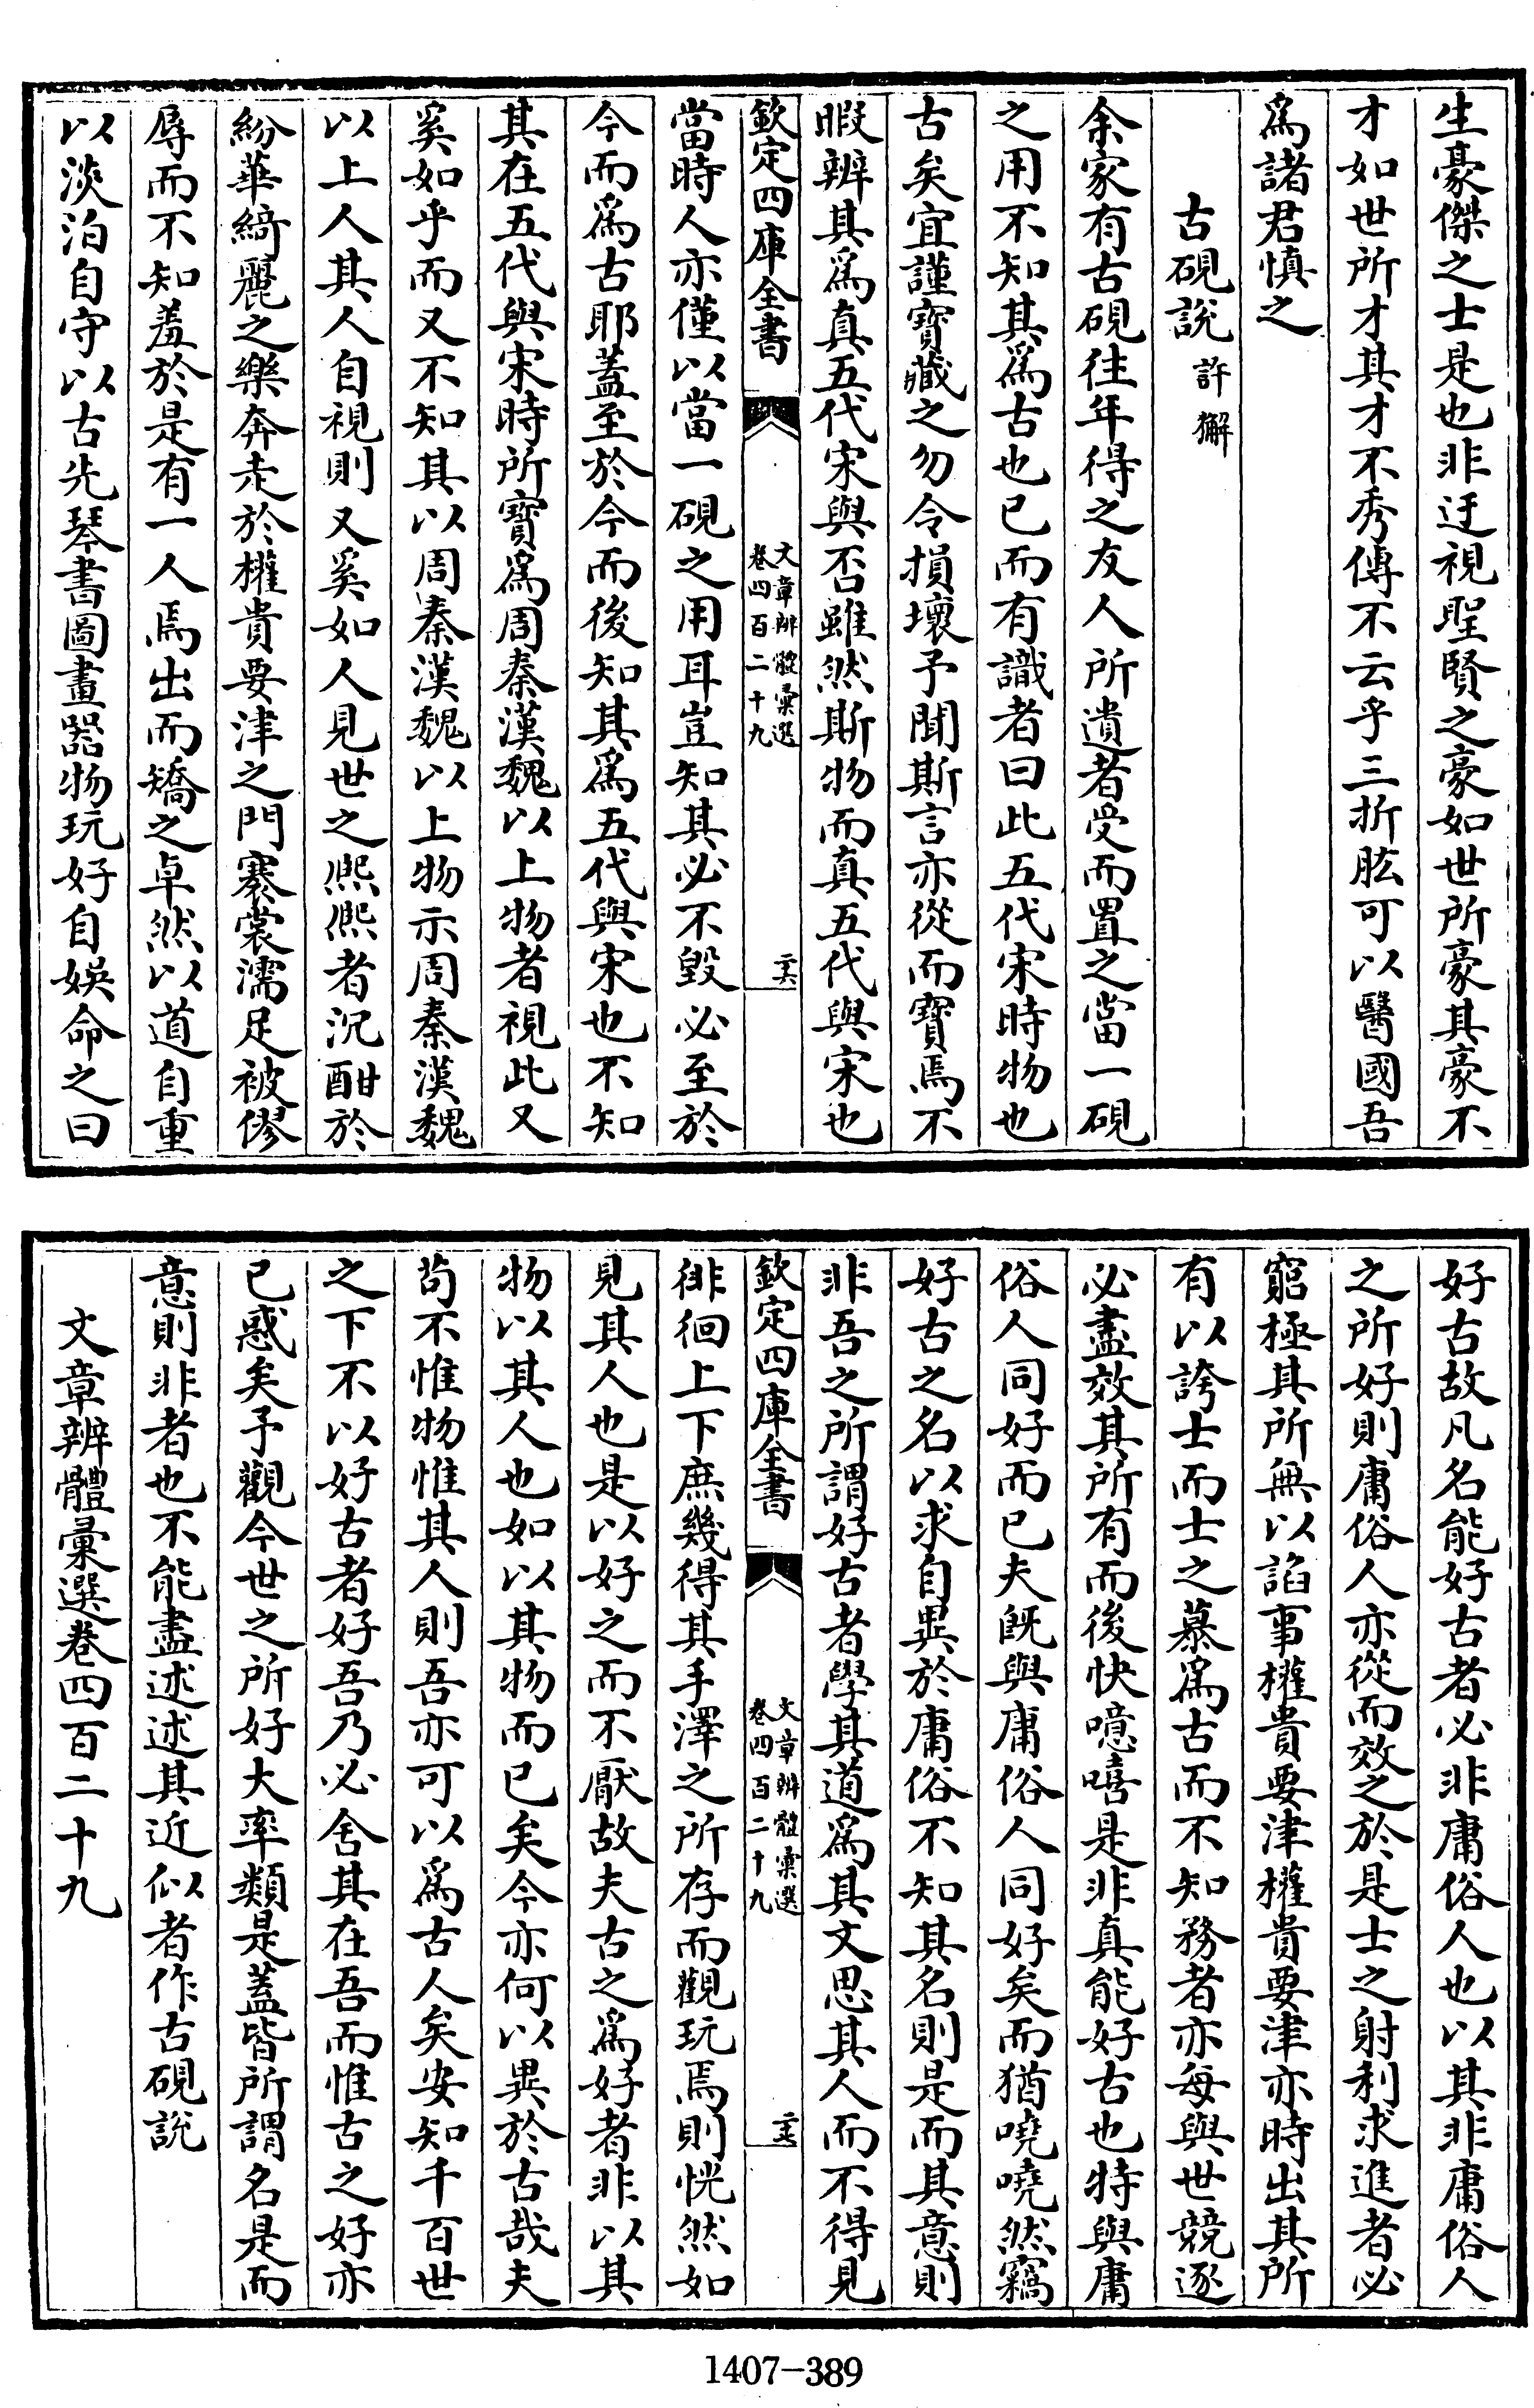 生豪傑之士是也非迂視聖賢之豪如世所豪其豪不
才如世所才其才不秀傳不云乎三折肱可以醫國吾
爲諸君愼之
古硯說 許獬
余家有古硯往年得之友人所遺者受而置之當一硯
之用不知其爲古也已而有識者曰此五代宋時物也
古矣宜謹寶藏之勿令損壞予聞斯言亦從而寶焉不
暇辨其爲真五代宋與否雖然斯物而真五代與宋也
欽定四庫全書
文章辨體彙選
卷四百二十九
二六
當時人亦僅以當一硯之用耳豈知其必不毀必至於
今而爲古耶蓋至於今而後知其爲五代與宋也不知
其在五代與宋時所寶爲周秦漢魏以上物者視此又
奚如乎而又不知其以周秦漢魏以上物示周秦漢魏
以上人其人自視則又奚如人見世之熙熙者沉酣於
紛華綺麗之樂奔走於權貴要津之門褰裳濡足被僇
辱而不知羞於是有一人焉出而矯之卓然以道自重
以淡泊自守以古先琴書圖畫器物玩好自娛命之曰
好古故凡名能好古者必非庸俗人也以其非庸俗人
之所好則庸俗人亦從而效之於是士之射利求進者必
窮極其所無以諂事權貴要津權貴要津亦時出其所
有以誇士而士之慕爲古而不知務者亦每與世競逐
必盡效其所有而後快噫嘻是非真能好古也特與庸
俗人同好而已夫既與庸俗人同好矣而猶嘵嘵然竊
好古之名以求自異於庸俗不知其名則是而其意則
非吾之所謂好古者學其道爲其文思其人而不得見
欽定四庫全書
文章辨體彙選
卷四百二十九
二七
徘徊上下庶幾得其手澤之所存而觀玩焉則恍然如
見其人也是以好之而不厭故夫古之爲好者非以其
物以其人也如以其物而已矣今亦何以異於古哉夫
苟不惟物惟其人則吾亦可以爲古人矣安知千百世
之下不以好古者好吾乃必舍其在吾而惟古之好亦
已惑矣予觀今世之所好大率類是蓋皆所謂名是而
意則非者也不能盡述述其近似者作古硯說
文章辨體彙選卷四百二十九
1407-389